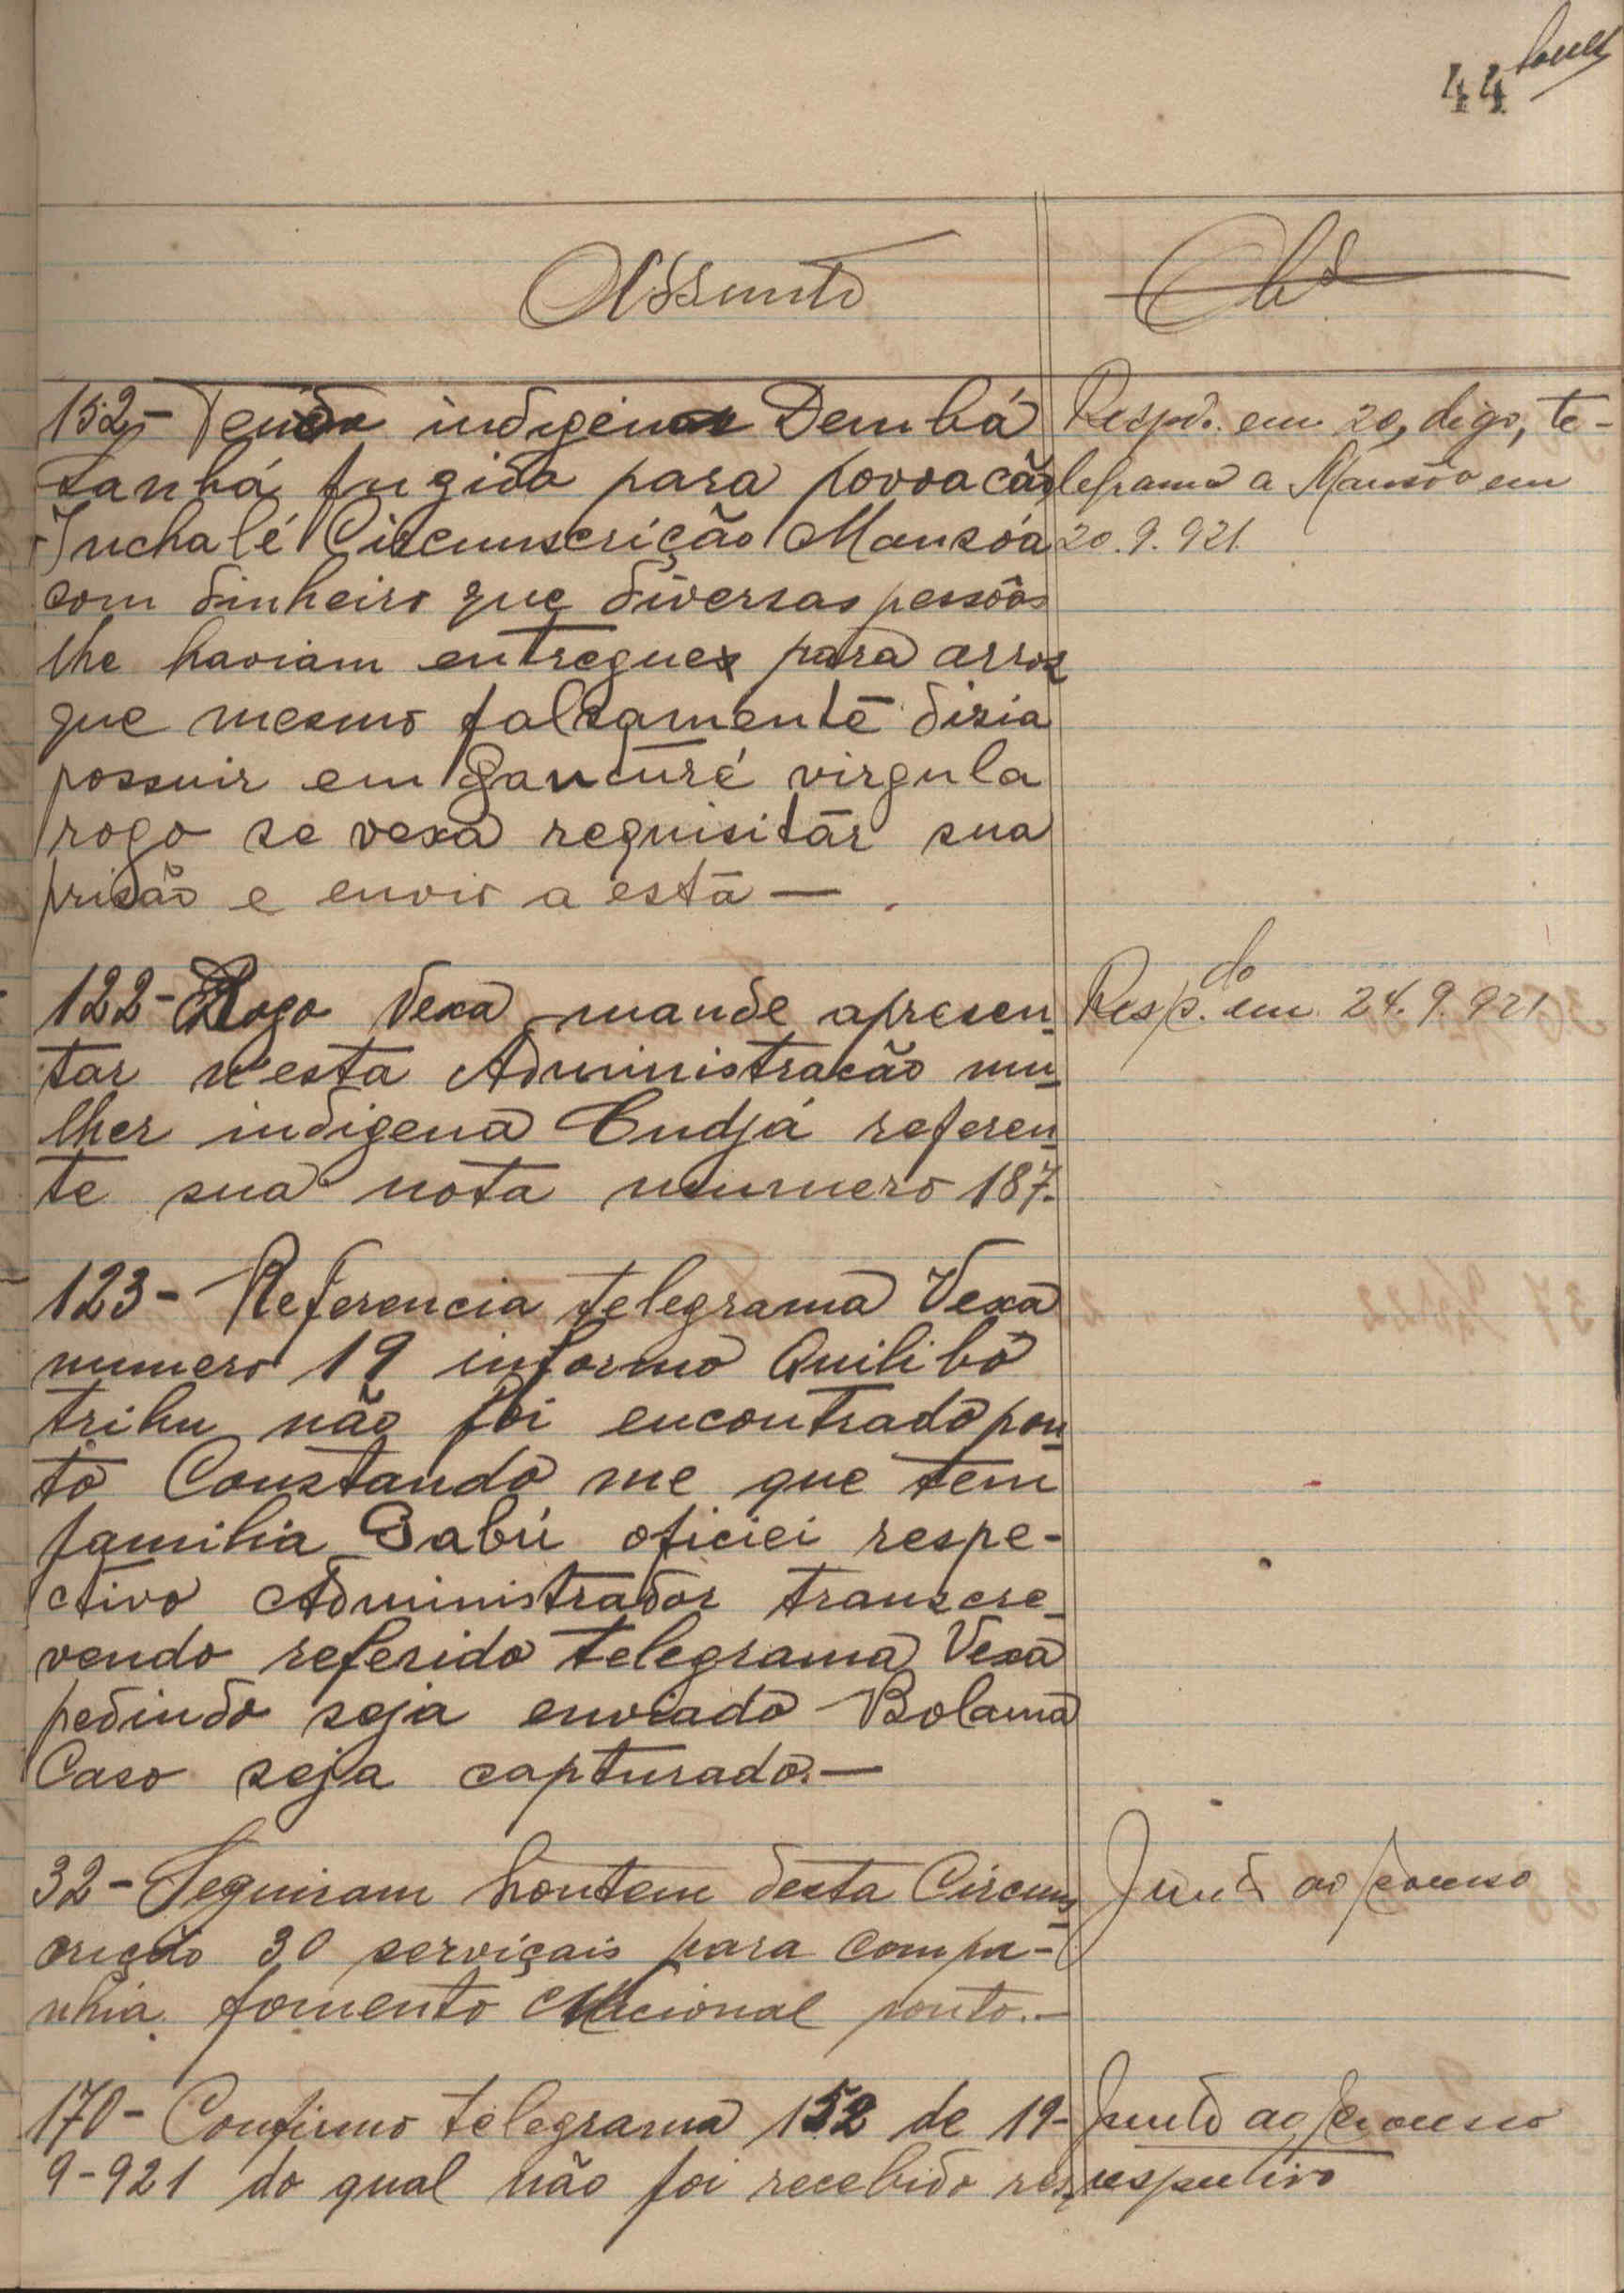 44
Assunto
Obs
152- Tendo indigena Dembá
Sanhá fugido para povoacão
Inchalé Circumscrição Mansôa
com dinheiro que diversas pessôas
lhe haviam entregues para arroz
que mesmo falsamente dizia
possuir em Ganturé virgula
rogo se vexa requisitar sua
prisão e envio a esta —
Respdo. em 20, digo, te-
legrama a Mansôa em
20.9.921.
122- Rogo Vexa mande apresen-
tar n'esta Administracão mu-
lher indigena Cudjá referen-
te sua nota numero 187.
Resp.do em 24.9.921
123- Referencia telegrama Vexa
numero 19 informo Quilibô
tribu não foi encontrado pon-
to Constando me que tem
familia Gabú oficiei respe-
ctivo Administrador transcre-
vendo referido telegrama Vexa
pedindo seja enviado Bolama
Caso seja capturado.—
32- Seguiram hontem desta Circuns-
crição 30 serviçais para compa-
nhia fomento Nacional ponto.—
Junto ao processo
170- Confirmo telegrama 152 de 19-
9-921 do qual não foi recebido res-
Junto ao processo
respectivo